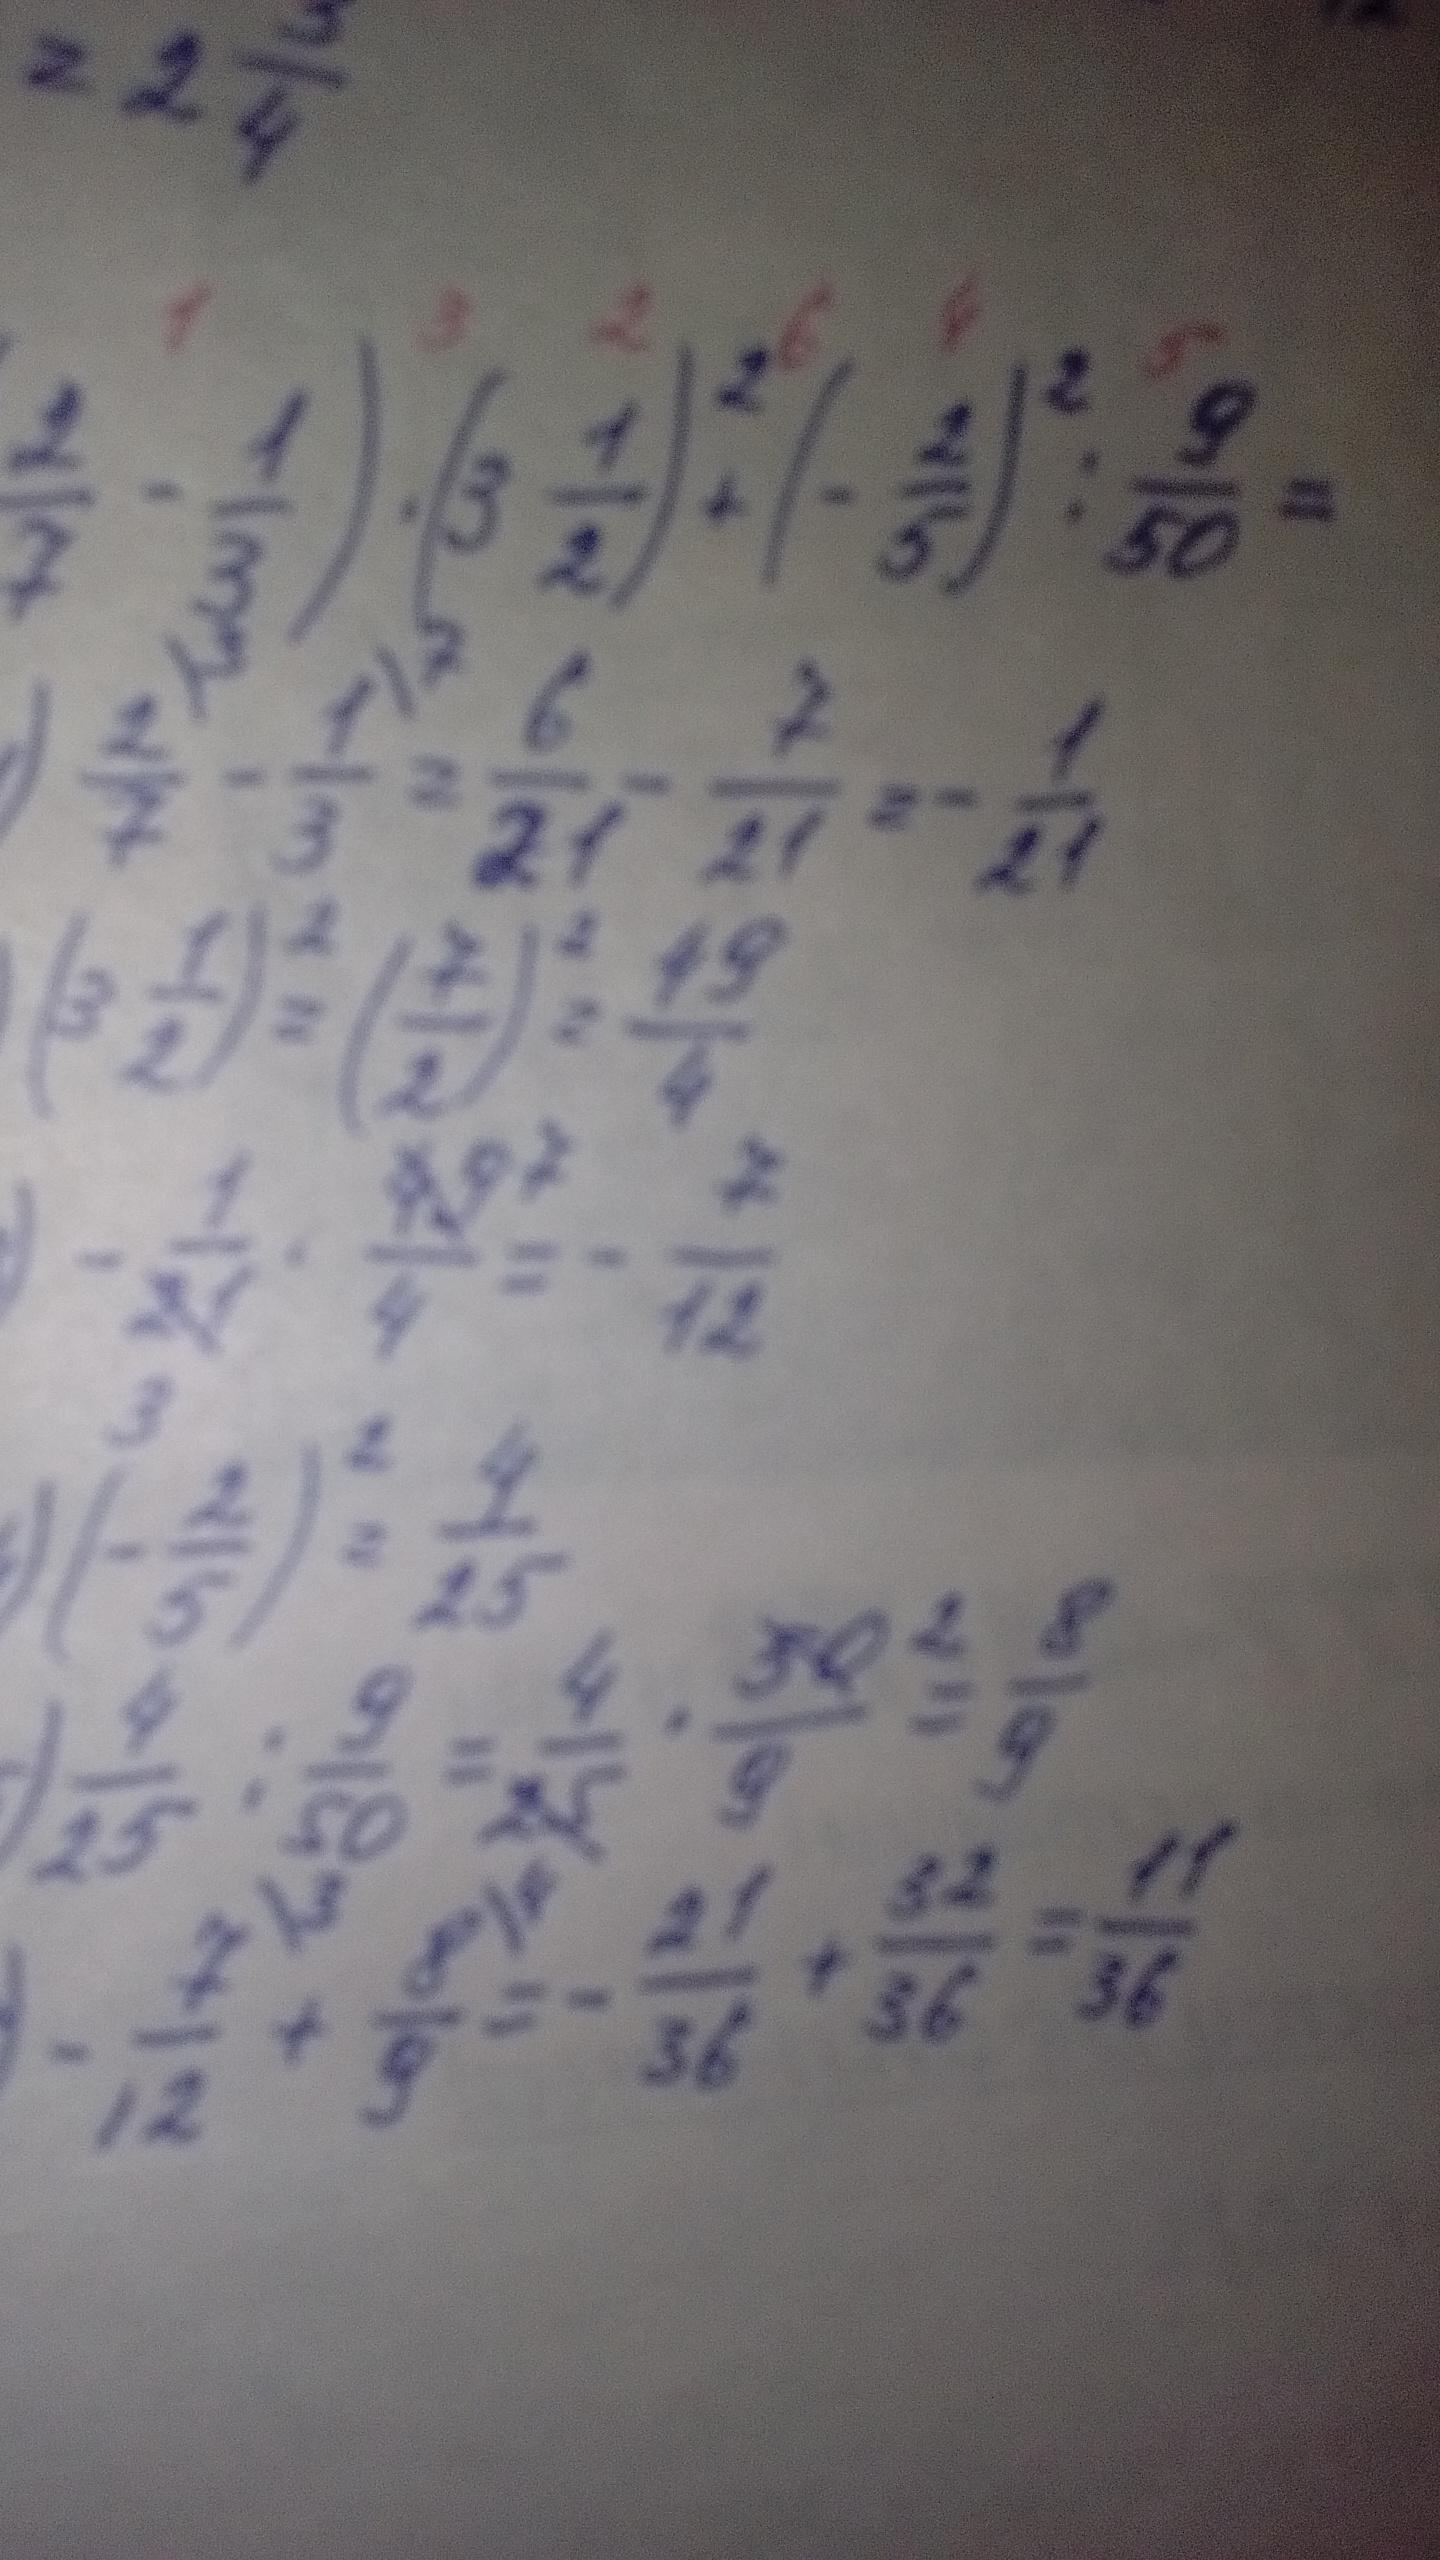 = 2 3/4
1 3 2 6 4 5
2/7 - 1/3) · (3 1/2)² + (- 2/5)² : 9/50 =
) 2/7 \3 - 1/3 \7 = 6/21 - 7/21 = - 1/21
) (3 1/2)² = (7/2)² = 49/4
) - 1/21 3 · 49 7/4 = - 7/12
) (- 2/5)² = 4/25
) 4/25 : 9/50 = 4/25 · 50 2/9 = 8/9
) - 7/12 \3 + 8/9 \4 = - 21/36 + 32/36 = 11/36